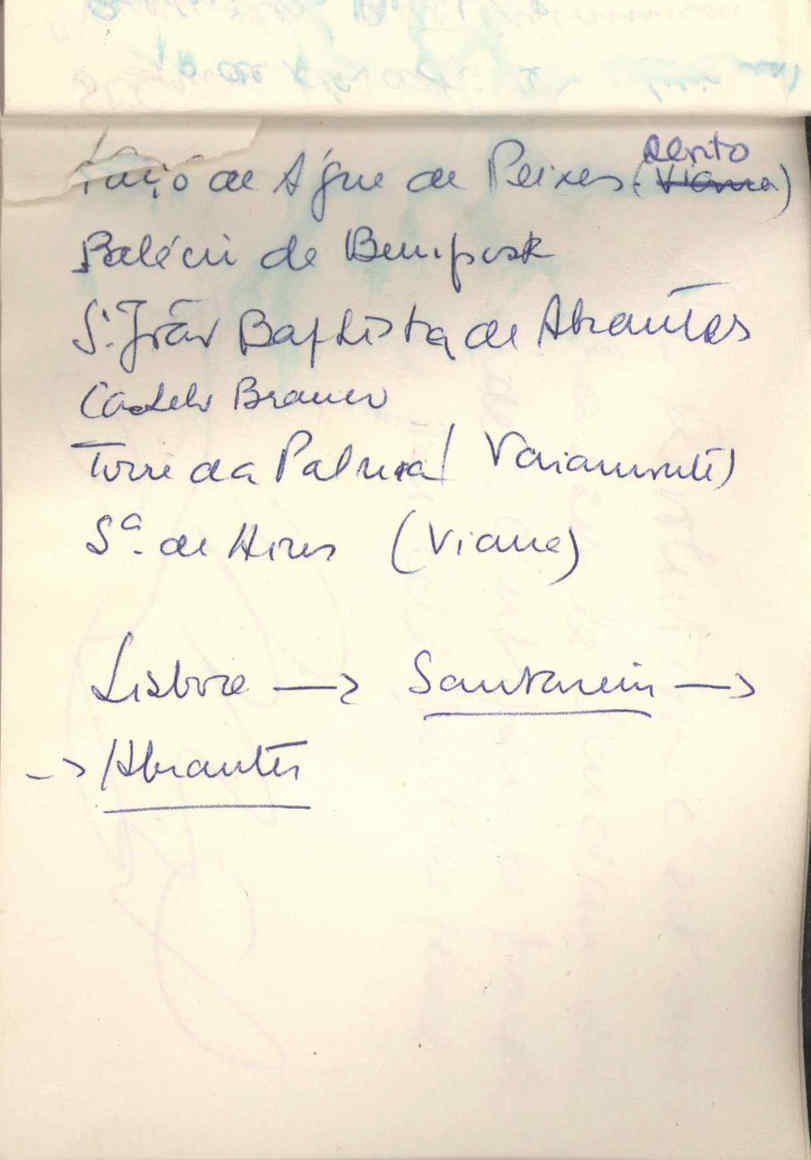 Paço de Água de Peixes (Alvito)
Palácio de Bemposta
S. João Baptista de Abrantes
Castelo Branco
Torre da Palma (Vaiamonte)
Sª. de Aires (Viana)
Lisboa → Santarém →
→ Abrantes